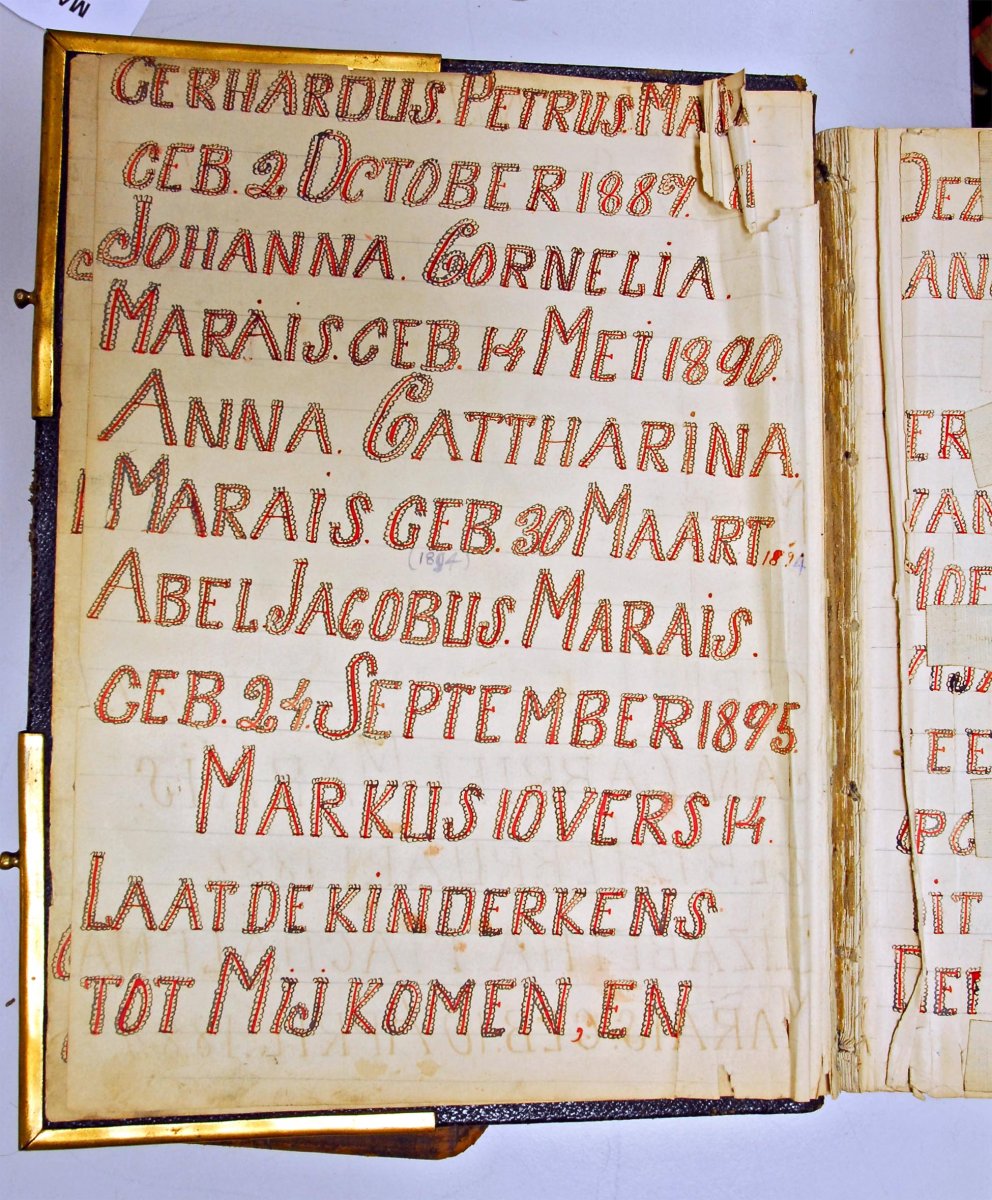 GERHARDUS. PETRUS. MA
GEB. 2 OCTOBER 1887.
JOHANNA. CORNELIA.
MARAIS. GEB. 14 MEI 1890.
ANNA. CATTHARINA.
MARAIS. GEB. 30 MAART 1894
(1894)
ABEL JACOBUS. MARAIS.
GEB. 24. SEPTEMBER 1895.
MARKUS 10 VERS 14.
LAAT DE KINDERKENS
TOT MIJ KOMEN, EN
DEZ
AN
ER
VAN
MOE
EE
IT